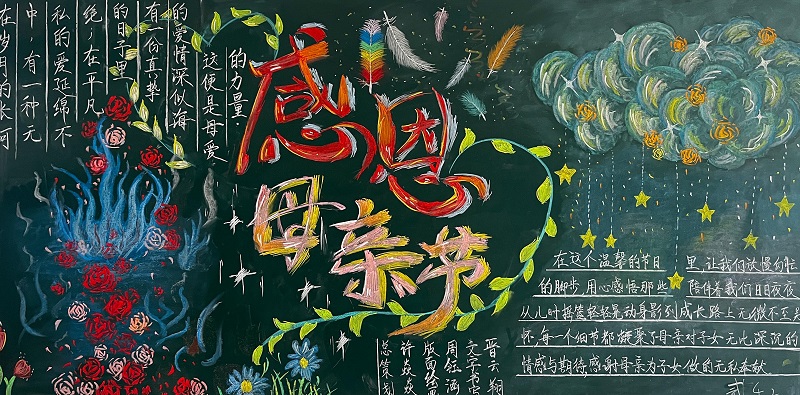 感恩
母亲节
在岁月的长河
中，有一种无
私的爱延绵不
绝，在平凡
的日子里
有一份真挚
的爱情深似海
这便是母爱
的力量
在这个温馨的节日里，让我们放慢匆忙
的脚步，用心感悟那些陪伴着我们日日夜夜
从儿时摇篮轻轻晃动身影到成长路上无微不至关
怀，每一个细节都凝聚了母亲对子女无比深沉的
情感与期待，感谢母亲为子女做的无私奉献
总策划
许焱焱
版面绘画
周钰涵
文字书写
晋云翔